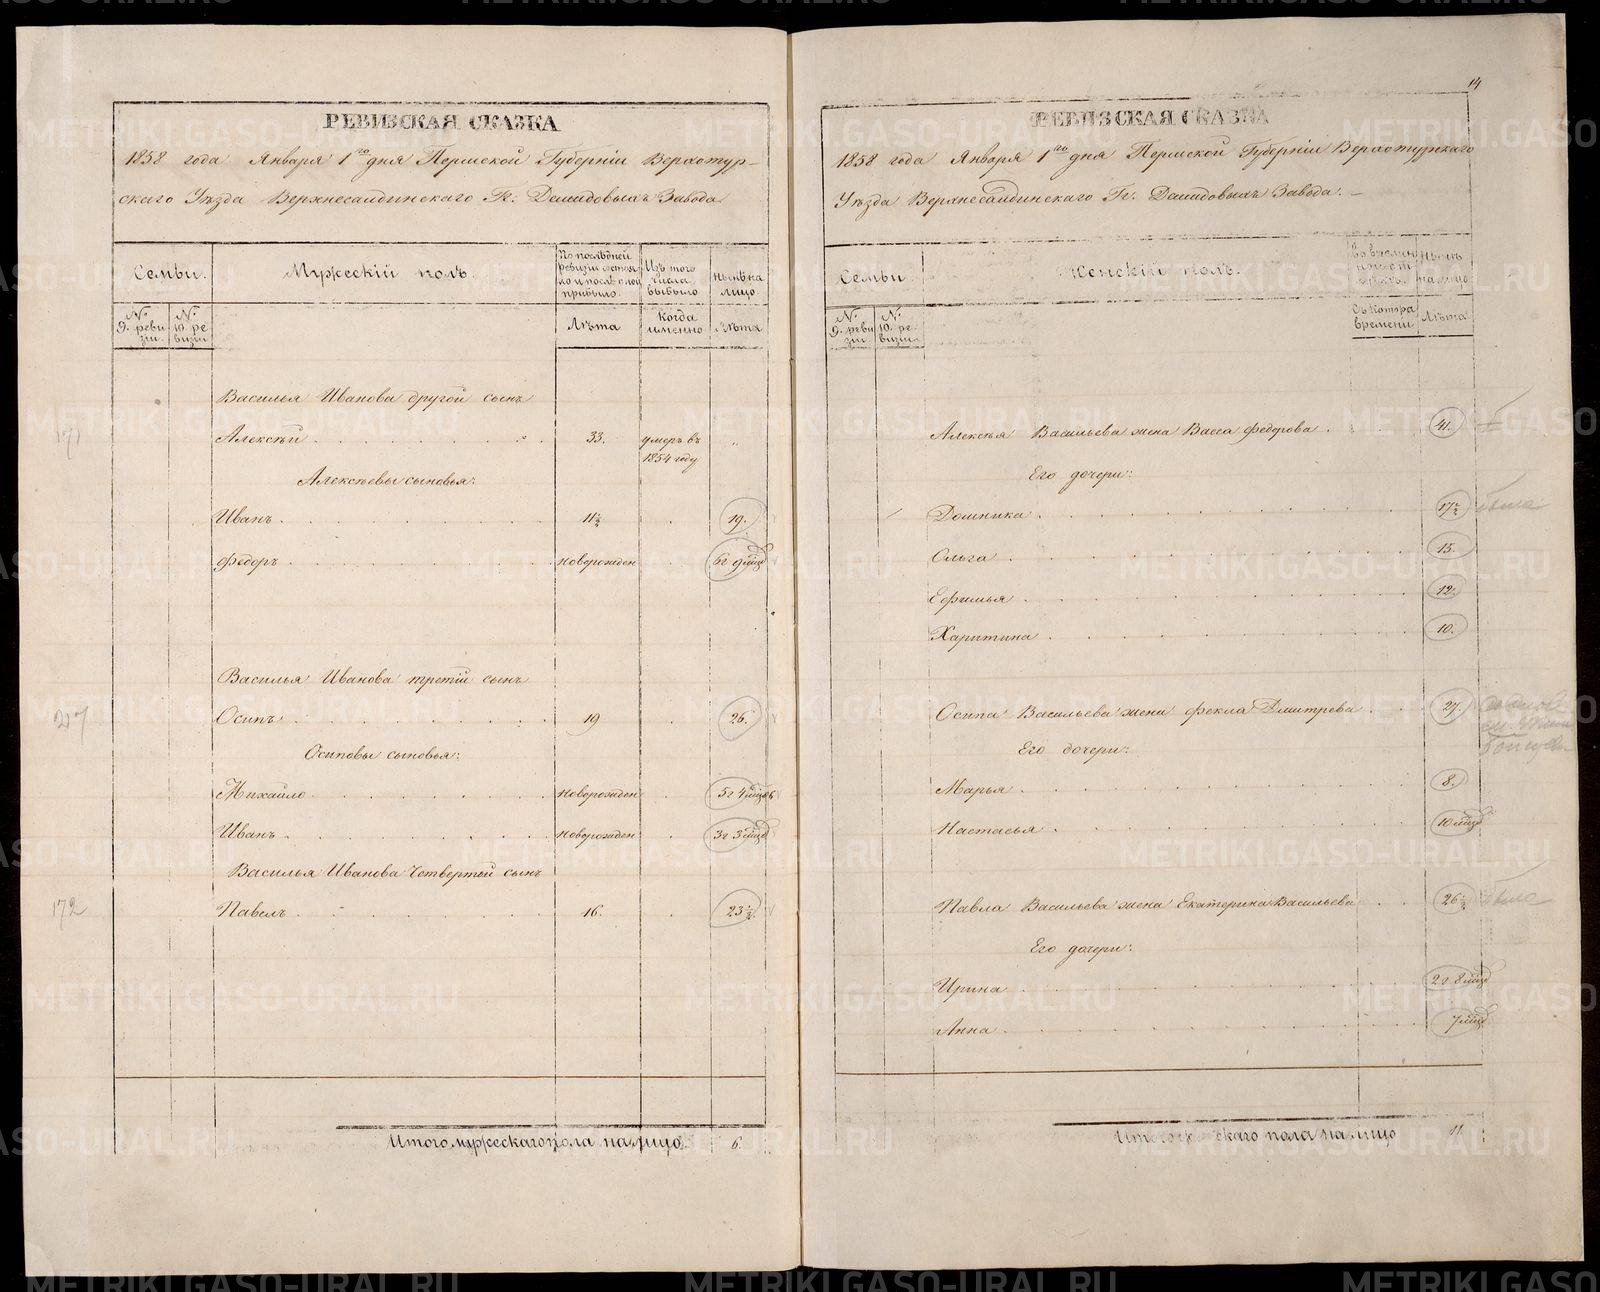 РЕВИЗСКАЯ СКАЗКА
1858 года Января 1го дня Пермской Губерніи Верхотур-
скаго Уѣзда Верхнесалдинскаго Гг. Демидовыхъ Завода
Семьи. Мужескій полъ. По послѣдней ревизіи состояло и послѣ оной прибыло. Изъ того числа выбыло Нынѣ на лицо
№ 9. ревизіи. № 10. ревизіи Лѣта Когда именно Лѣта
Василья Иванова другой сынъ
171 Алексѣй 33. умеръ въ 1854 году „
Алексѣевы сыновья:
Иванъ 11½ 19.
Федоръ новорожден 6г 9мцъ
Василья Иванова третій сынъ
217 Осипъ 19 26.
Осиповы сыновья:
Михайло новорожден 5г 4мцовъ
Иванъ новорожден 3г 3мцъ
Василья Иванова четвертой сынъ
172 Павелъ 16. 23½.
Итого мужескаго пола на лицо 6.
14
РЕВИЗСКАЯ СКАЗКА
1858 года Января 1го дня Пермской Губерніи Верхотурскаго
Уѣзда Верхнесалдинскаго Гг. Демидовыхъ Завода. –
Семьи Женскій полъ. Нынѣ на лицо
№ 9. ревизіи № 10. ревизіи. Съ котора времени Лѣта
Алексѣя Васильева жена Васса Федорова 41.
Его дочери:
Домника 17½
Ольга 15.
Ефимья 12.
Харитина 10.
Осипа Васильева жена Фекла Дмитрева 27.
Его дочери:
Марья 8.
Настасья 10мцъ
Павла Васильева жена Екатерина Васильева 26½
Его дочери:
Ирина 2г 8мцъ
Анна 7мцъ
Итого скаго пола на лицо 11.
METRIKI.GASO-URAL.RU